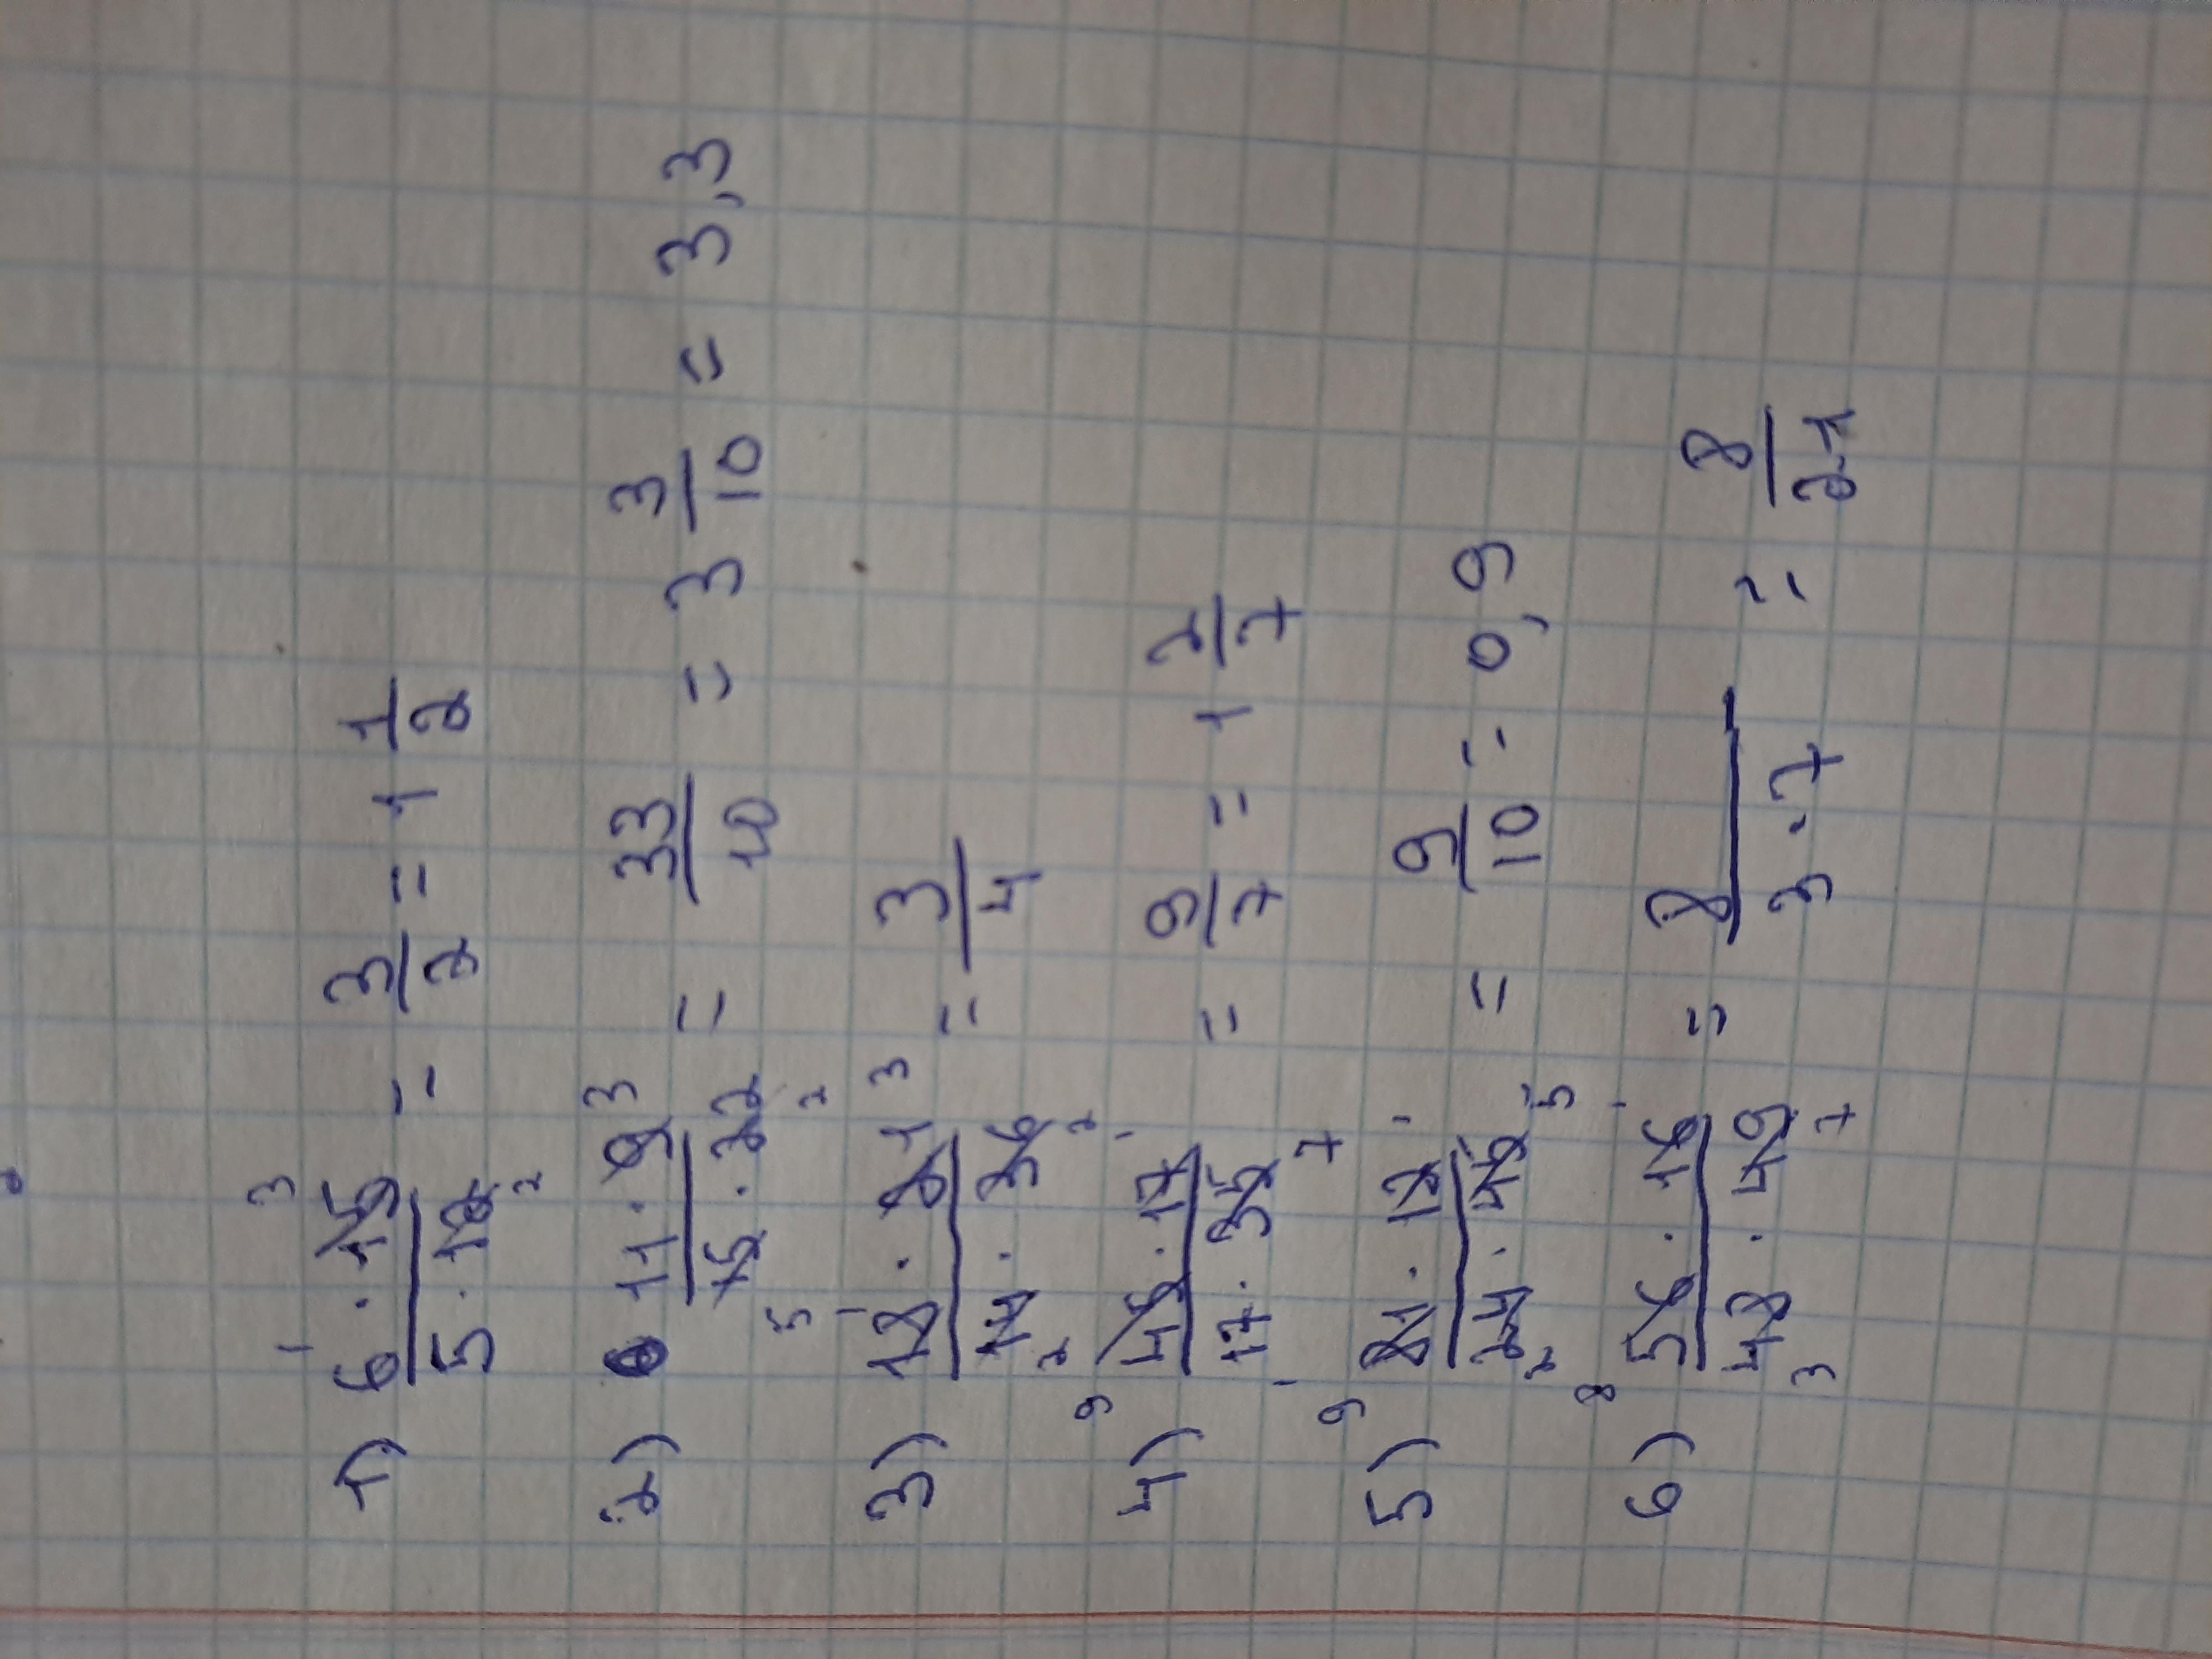 1) 6 · 15 / 5 · 12 = 3/2 = 1 1/2
2) 11 · 9 / 15 · 22 = 33/10 = 3 3/10 = 3,3
3) 18 · 21 / 14 · 36 = 3/4
4) 45 · 17 / 17 · 35 = 9/7 = 1 2/7
5) 81 · 12 / 24 · 45 = 9/10 = 0,9
6) 56 · 16 / 48 · 49 = 8 / 3 · 7 = 8/21